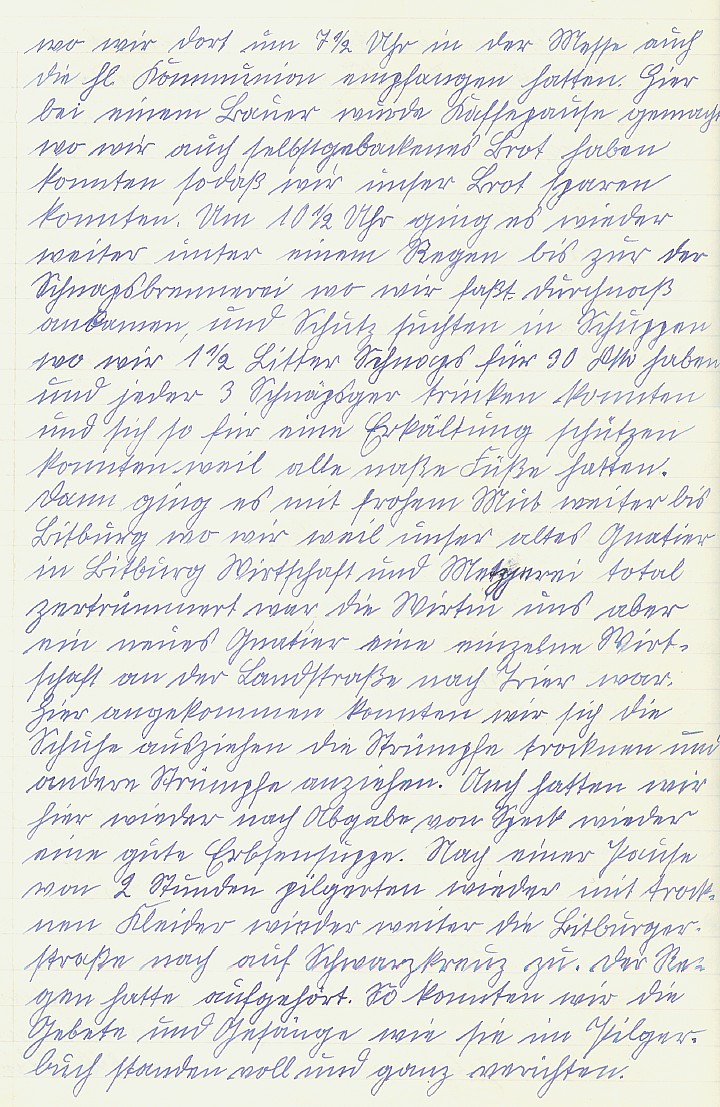 wo wir dort um 7 1/2 Uhr in der Messe auch
die hl Kommunion empfangen hatten. Hier
bei einem Bauer wurde Kaffepause gemacht
wo wir auch selbstgebackenes Brot haben
konnten sodaß wir unser Brot sparen
konnten. Um 10 1/2 Uhr ging es wieder
weiter unter einem Regen bis zur der
Schnapsbrennerei wo wir faßt durchnaß
ankamen, und Schutz suchten in Schuppen
wo wir 1 1/2 Litter Schnaps für 30 DM haben
und jeder 3 Schnäpsger trinken konnten
und sich so für eine Erkältung schützen
konnten weil alle naße Füße hatten.
Dann ging es mit frohem Mut weiter bis
Bitburg wo wir weil unser altes Quatier
in Bitburg Wirtschaft und Metzgerei total
zertrümmert war die Wirtin uns aber
ein neues Quatier eine einzelne Wirt-
schaft an der Landstraße nach Trier war.
Hier angekommen konnten wir sich die
Schuhe ausziehen die Strümpfe trocknen und
andere Strümpfe anziehen. Auch hatten wir
hier wieder nach Abgabe von Speck wieder
eine gute Erbsensuppe. Nach einer Pause
von 2 Stunden pilgerten wieder mit trock-
nen Kleider wieder weiter die Bitburger-
straße nach auf Schwarzkreuz zu. Der Re-
gen hatte aufgehört. So konnten wir die
Gebete und Gesänge wie sie im Pilger-
buch standen voll und ganz verichten.